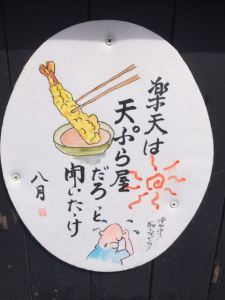 楽天は
天ぷら屋
だろっと
聞いたけ
八月